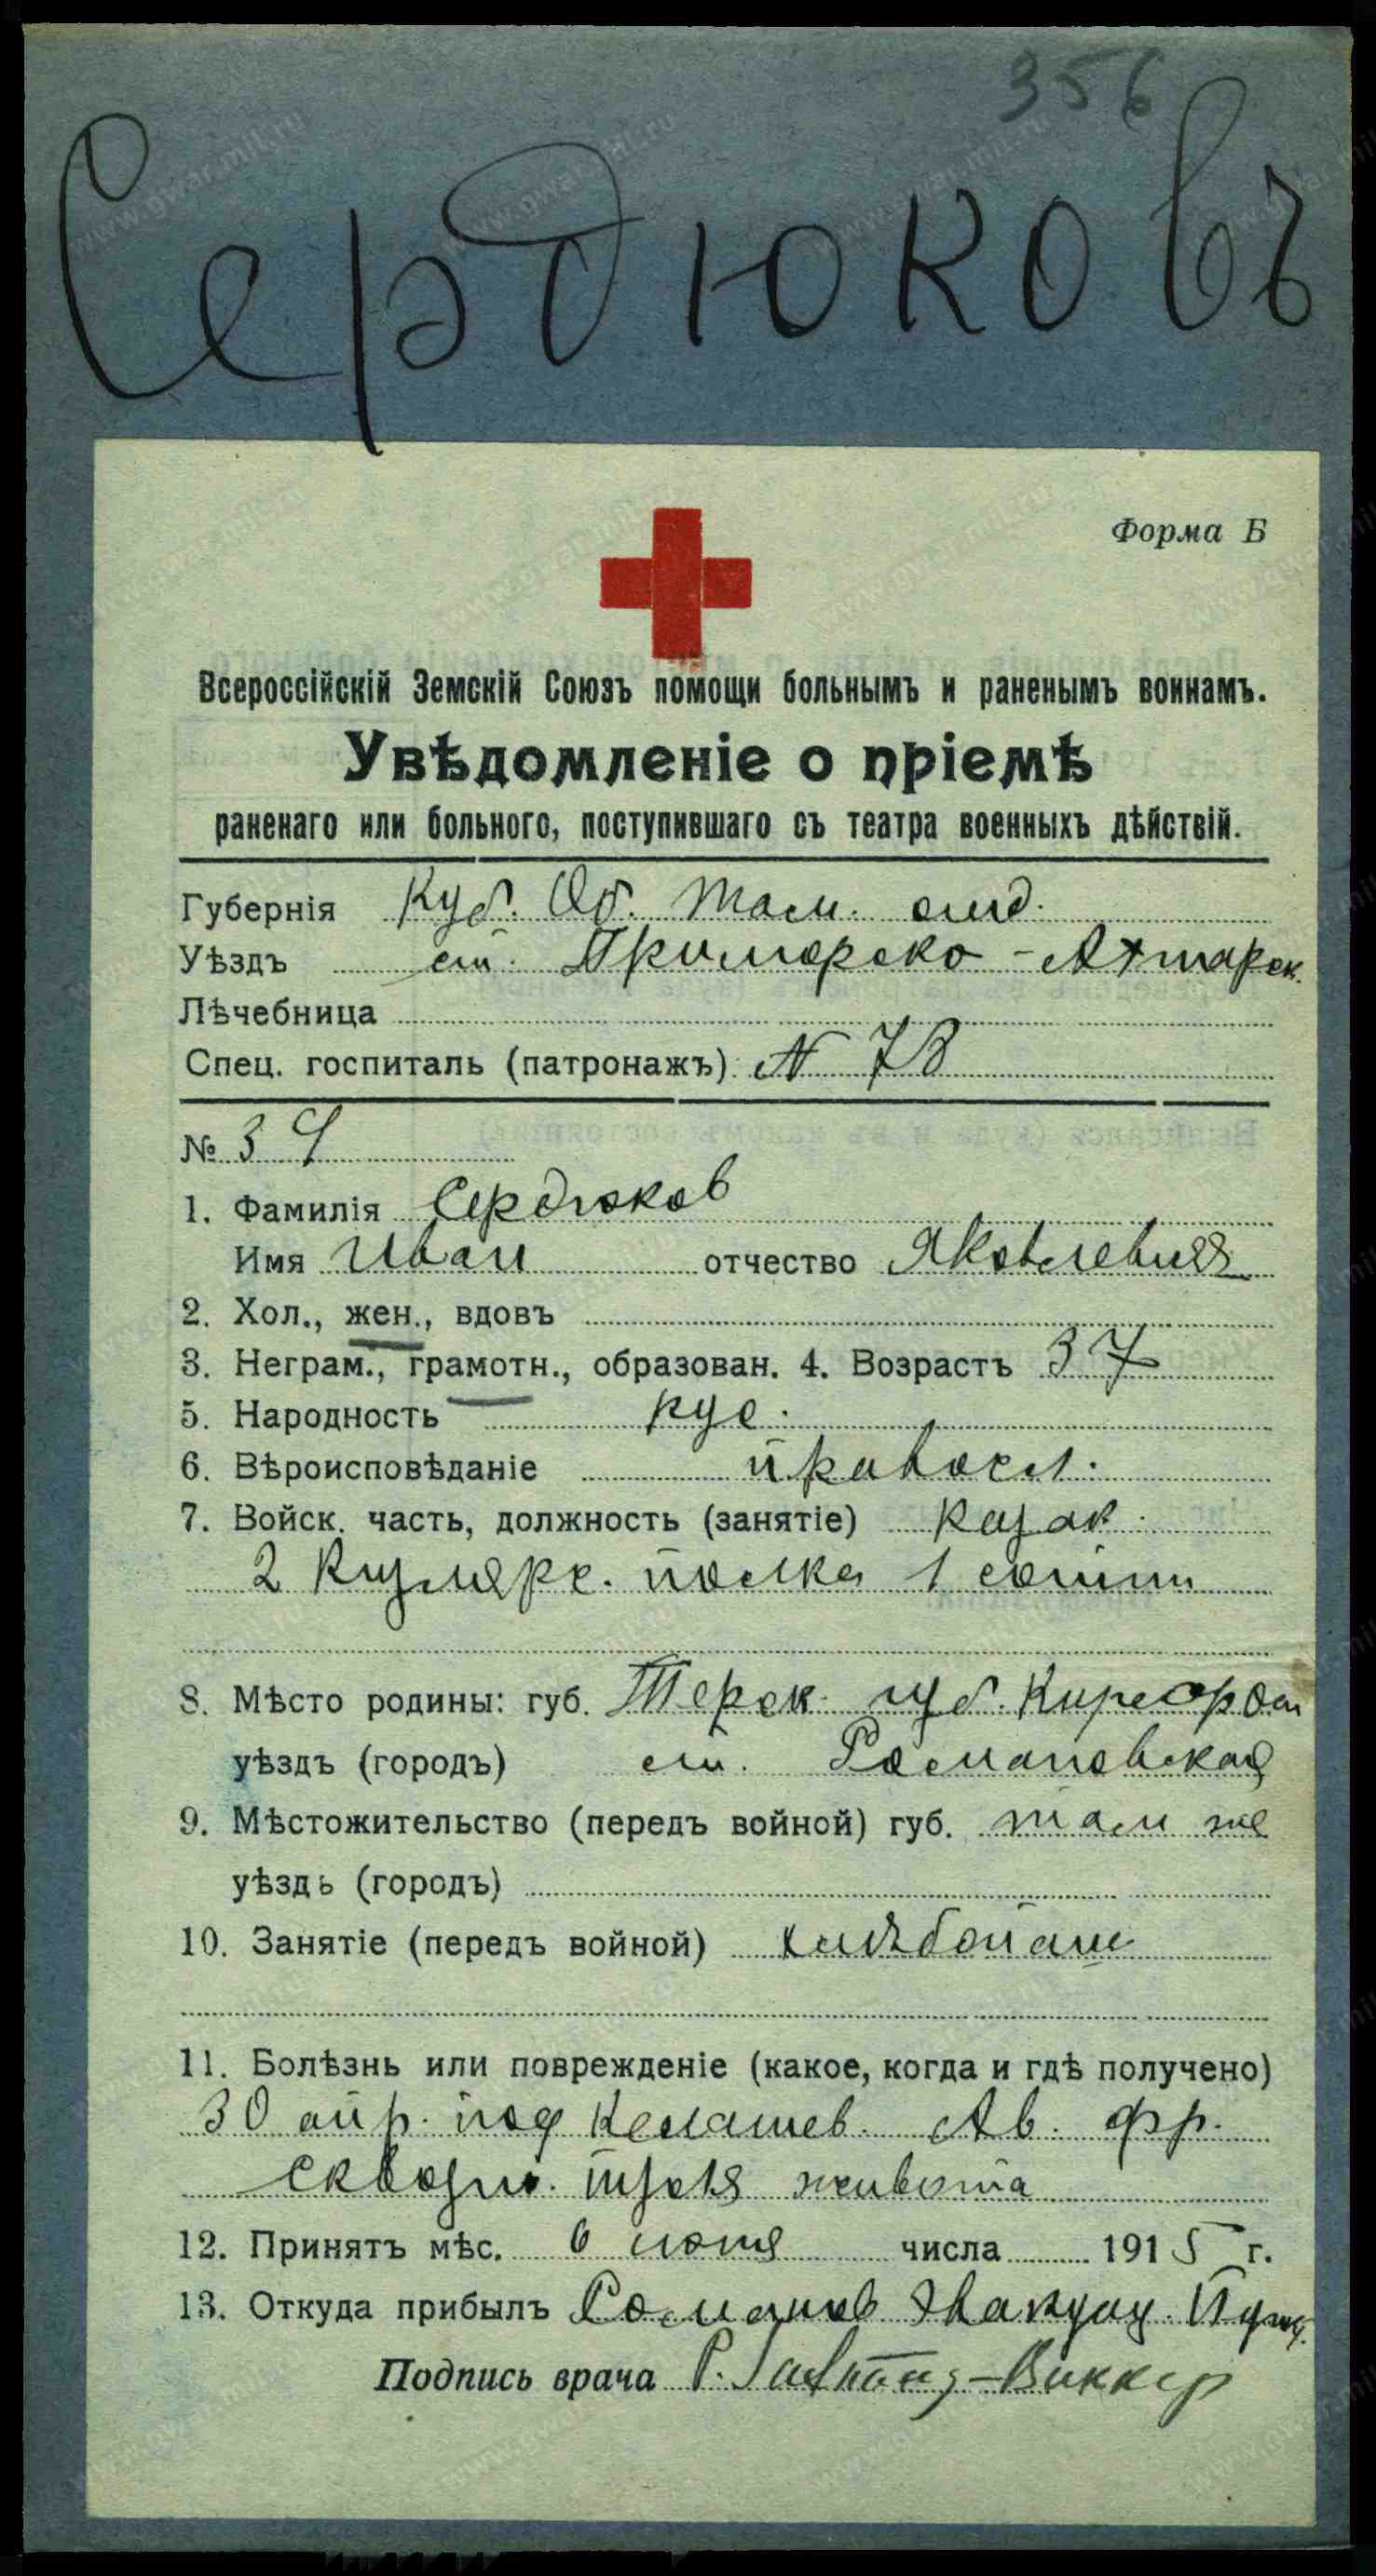 356
Сердюковъ
Форма Б
Всероссійскій Земскій Союзъ помощи больнымъ и раненымъ воинамъ.
Увѣдомленіе о пріемѣ
раненаго или больного, поступившаго съ театра военныхъ дѣйствій.
Губернія Куб. Об. Там. отд.
Уѣздъ ст. Приморско-Ахтарск.
Лѣчебница
Спец. госпиталь (патронажъ) N 73
№ 39
1. Фамилія Сердюков
Имя Иван отчество Яковлевич
2. Хол., жен., вдовъ
3. Неграм., грамотн., образован. 4. Возрастъ 37
5. Народность рус.
6. Вѣроисповѣданіе правосл.
7. Войск. часть, должность (занятіе) казак
2 Кизлярс. полка 1 сотни
8. Мѣсто родины: губ. Терск.
уѣздъ (городъ) ст. Романовская
9. Мѣстожительство (передъ войной) губ. там же
уѣздъ (городъ)
10. Занятіе (передъ войной) хлѣбопаш
11. Болѣзнь или поврежденіе (какое, когда и гдѣ получено)
30 апр. под Ав. фр.
сквозн. живота
12. Принятъ мѣс. 6 июня числа 1915 г.
13. Откуда прибылъ Романов Эвакуац. Пункт.
Подпись врача Р.